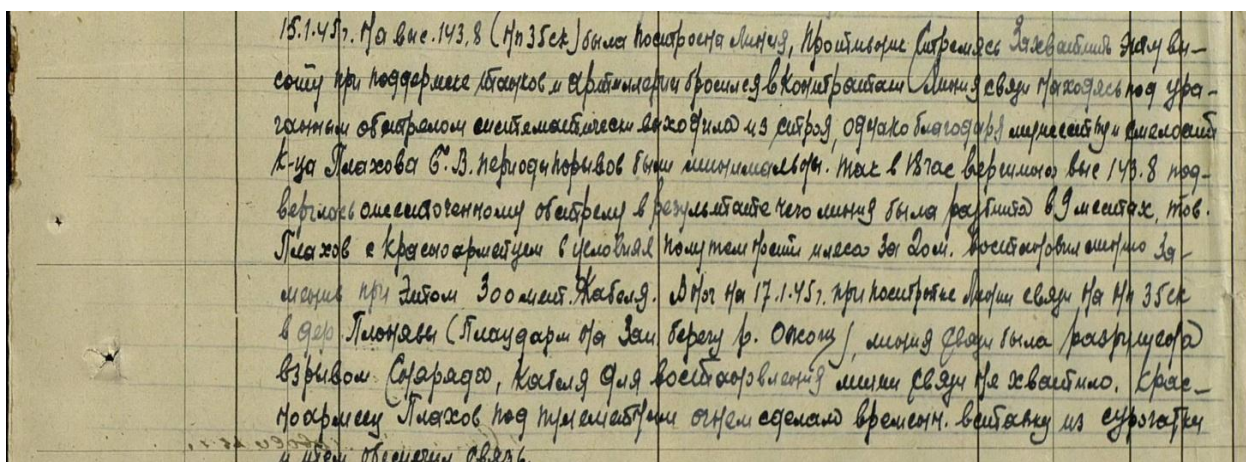 15.1.45г. На выс. 143,8 (НП 35ск) была построена линия, Противник стремясь захватить эту вы-
соту при поддержке танков и артиллерии бросился в контратаки. Линия связи находясь под ура-
ганным обстрелом систематически выходила из строя, однако благодаря мужеству и смелости
к-ца Плахова С.В. периоды порывов были минимальны. Так в 18 час выс 143.8 под-
верглось ожесточенному обстрелу в результате чего линия была разбита в 9 местах, тов.
Плахов с красноармейцем в условиях полутемноты и леса за 20м. восстановил линию за-
менив при этом 300 мет. кабеля. В ночь на 17.1.45г. при постройке линии связи на НП 35ск
в дер. (Плацдарм на Зап берегу р.), линия связи была разрушена
взрывом снаряда, кабеля для восстановления линии связи не хватило. Крас-
ноармеец Плахов под пулеметным огнем сделал времен. вставку из
и этим обеспечил связь.